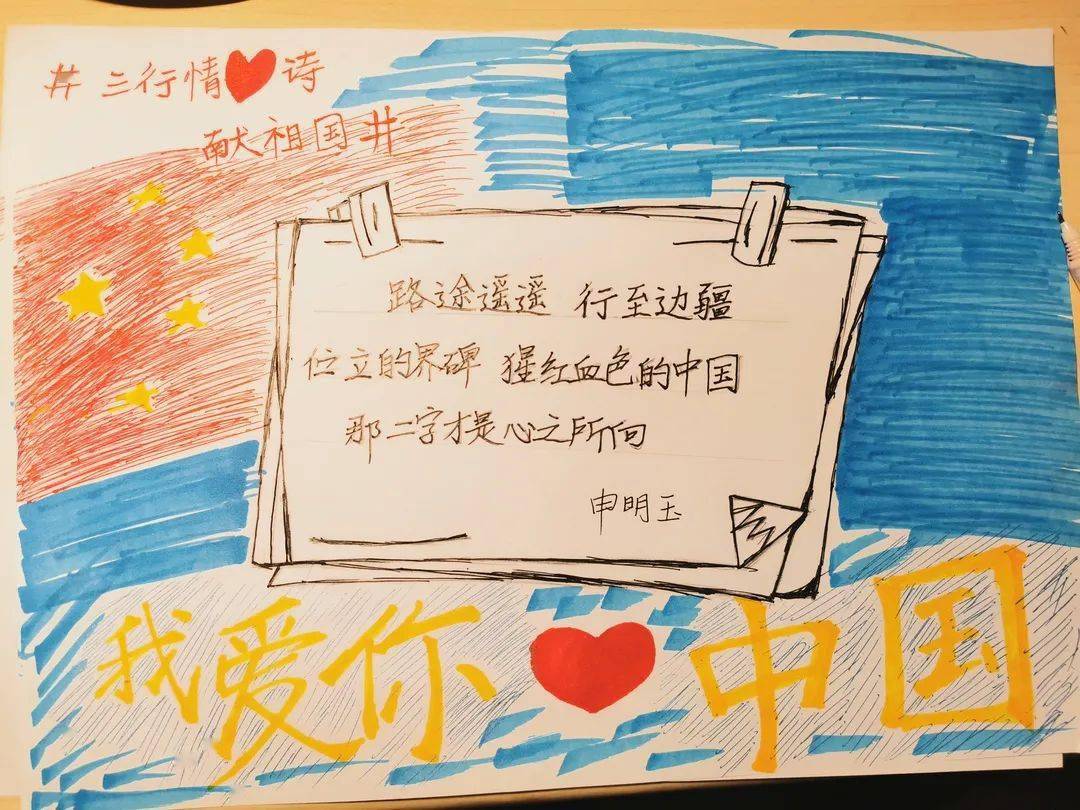 #三行情❤诗
献祖国#
路途遥遥 行至边疆
位立的界碑 猩红血色的中国
那二字才是心之所向
申明玉
我爱你❤中国